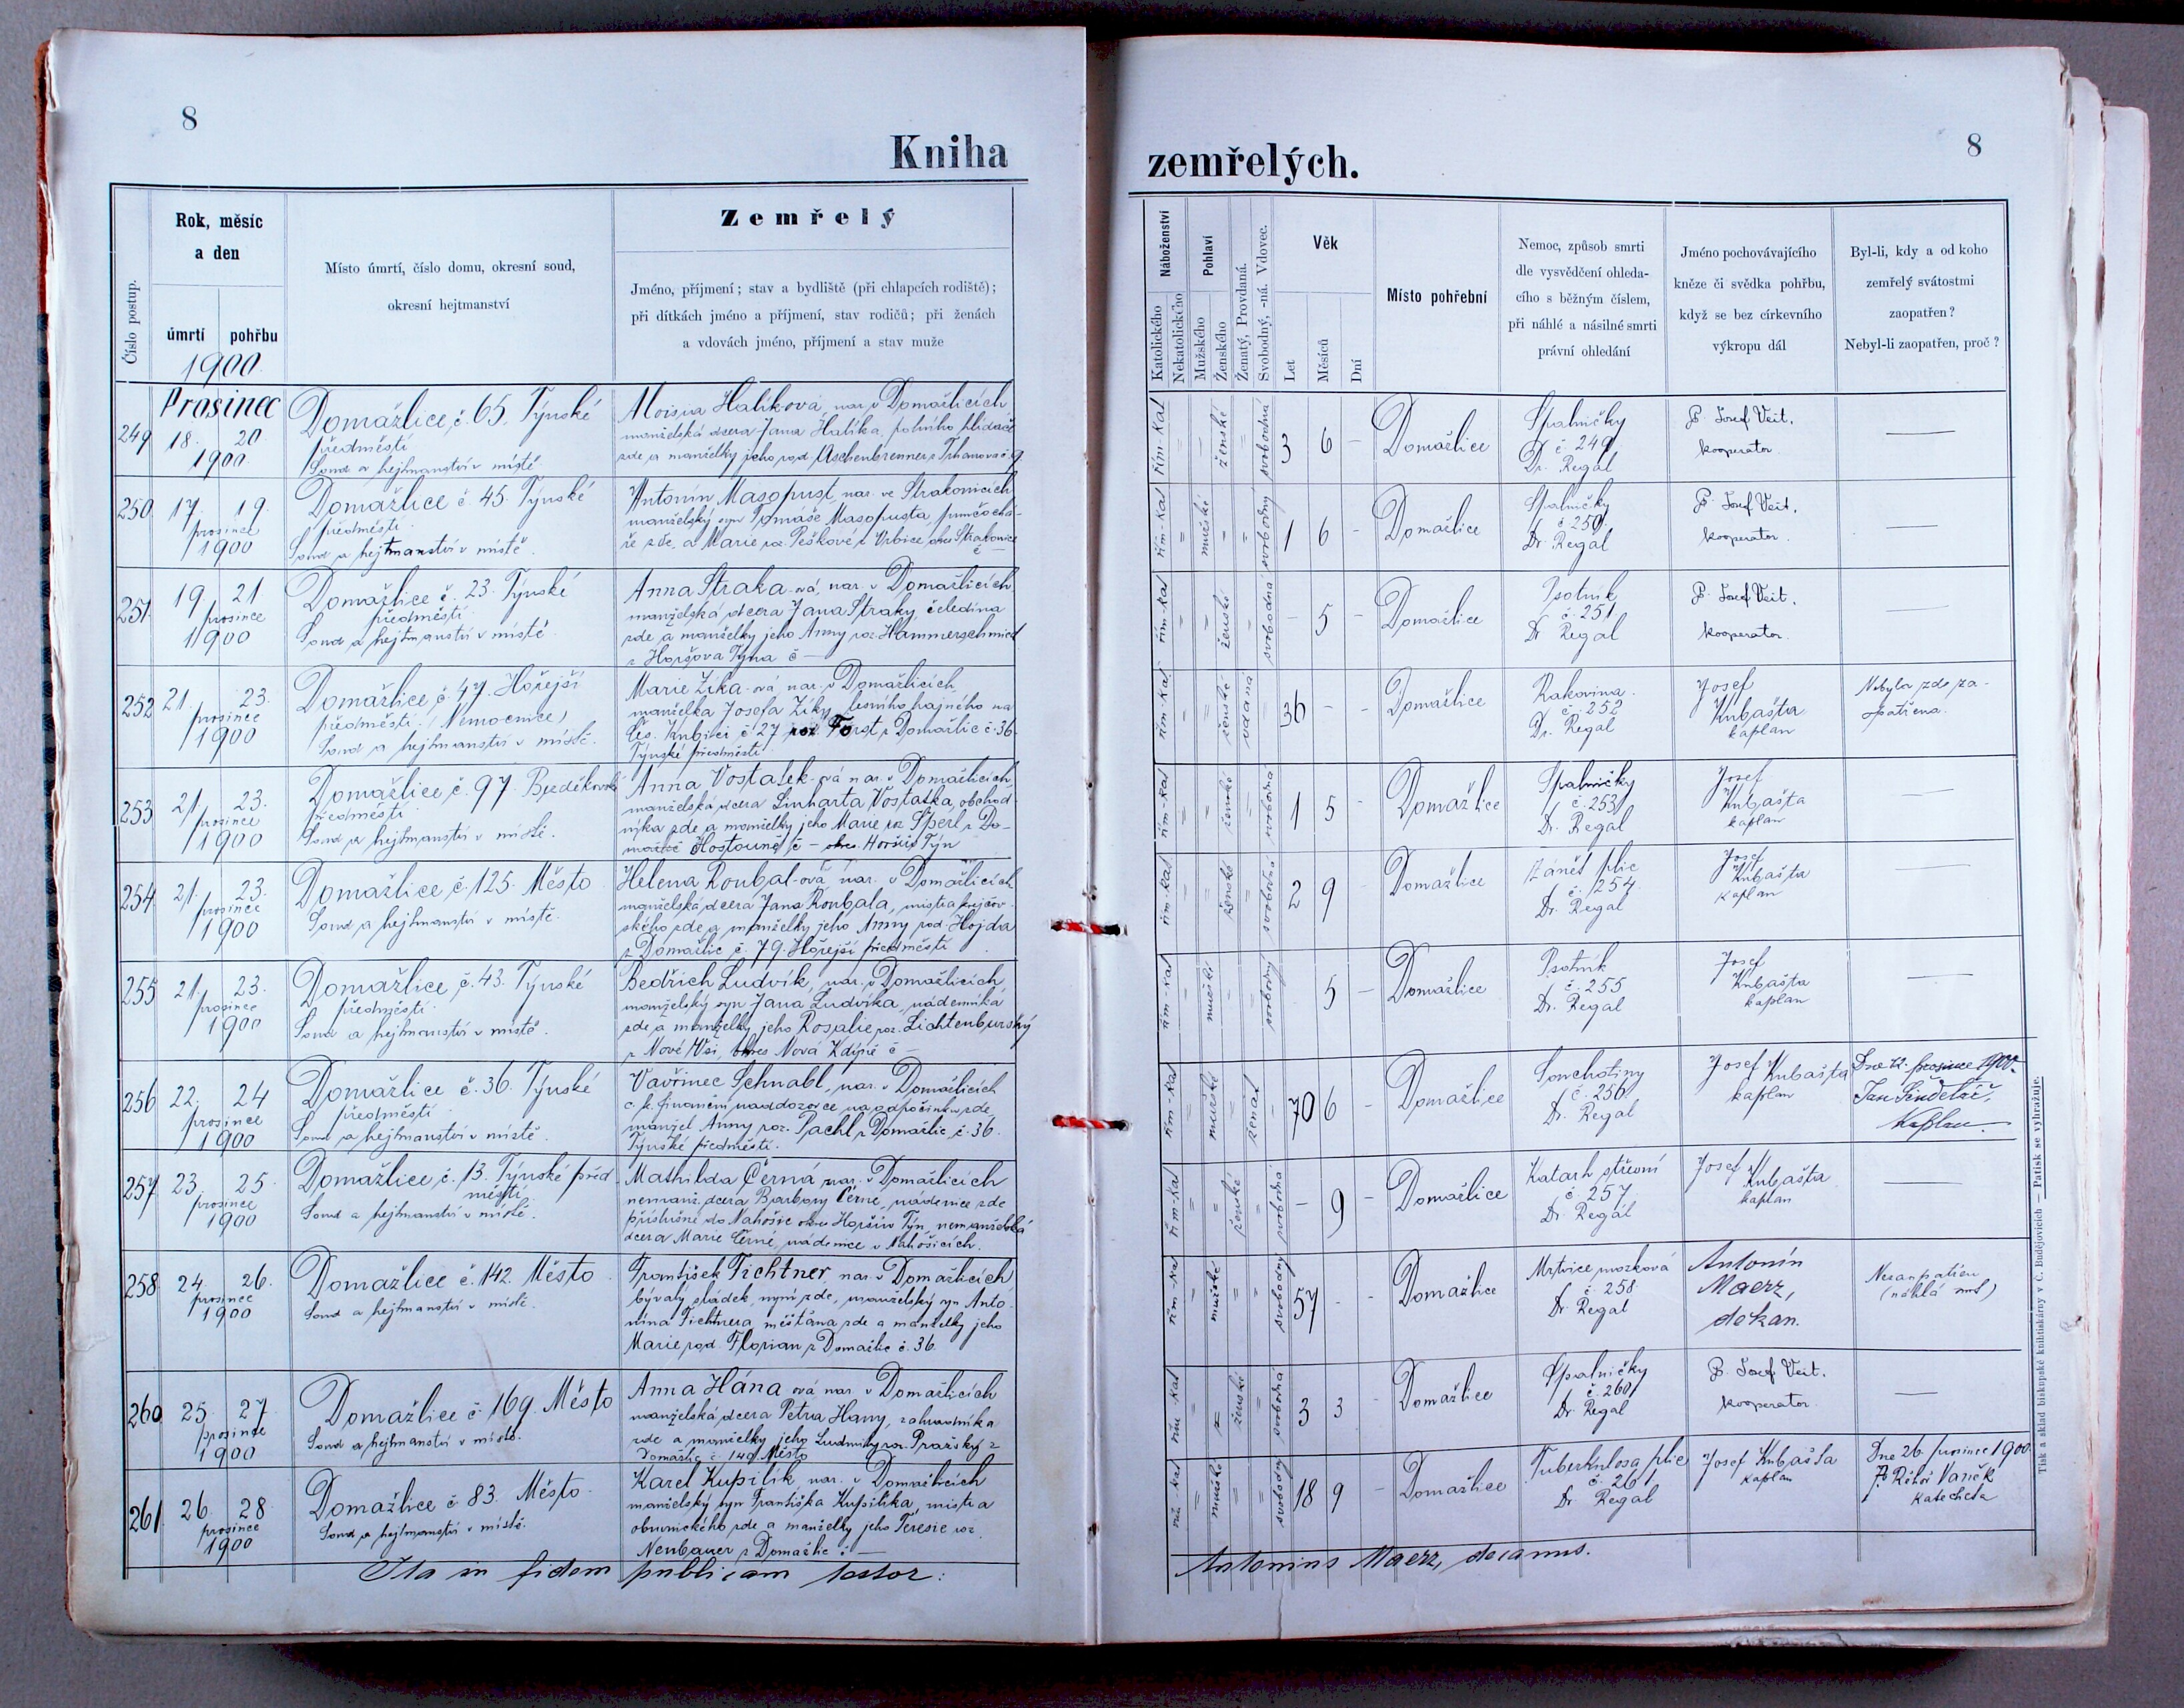 8
Kniha
Číslo postup.
Rok, měsíc
a den
úmrtí
pohřbu
1900
Místo úmrtí, číslo domu, okresní soud,
okresní hejtmanství
Zemřelý
Jméno, příjmení; stav a bydliště (při chlapcích rodiště);
při dítkách jméno a příjmení, stav rodičů; při ženách
a vdovách jméno, příjmení a stav muže
Prosinec
249
18. 20
1900
Domažlice, č. 65. Týnské
předměstí
Soud a hejtmanství v místě
Aloisia Halíková, nar. v Domažlicích
manželská dcera Jana Halíka, polního hlídače
zde a manželky jeho rod. Aschenbrenner z Trhanova č. 9
250
17. 19.
prosince
1900
Domažlice č. 45. Týnské
předměstí
Soud a hejtmanství v místě.
Antonín Masopust, nar. ve Strakonicích
manželský syn Tomáše Masopusta, punčochá-
ře zde, a Marie roz. Peškové z Vrbice okres Strakonice
č —
251
19. 21
prosince
1900
Domažlice č. 23. Týnské
předměstí
Soud a hejtmanství v místě.
Anna Straka-ová, nar. v Domažlicích
manželská dcera Jana Straky, čeledína
zde a manželky jeho Anny roz. Hammerschmied
z Horšova Týna č —
252
21. 23.
prosince
1900
Domažlice č. 47. Hořejší
předměstí. (Nemocnice)
Soud a hejtmanství v místě.
Marie Zíka-ová, nar. v Domažlicích,
manželka Josefa Zíky, lesního hajného na
Čes. Kubici č 27 roz. Forst z Domažlic č. 36.
Týnské předměstí
253
21. 23.
prosince
1900
Domažlice, č. 97. Bezděkovské
předměstí
Soud a hejtmanství v místě.
Anna Vostatek-ová nar. v Domažlicích
manželská dcera Linharta Vostatka, obchod-
níka zde a manželky jeho Marie roz. Sperl z
Hostouně č — okres Horšův Týn
254
21. 23.
prosince
1900
Domažlice, č. 125. Město
Soud a hejtmanství v místě.
Helena Roubal-ová nar. v Domažlicích
manželská dcera Jana Roubala, mistra krejčov-
ského zde a manželky jeho Anny rod. Hojda
z Domažlic č. 79. Hořejší předměstí
255
21. 23.
prosince
1900
Domažlice, č. 43. Týnské
předměstí
Soud a hejtmanství v místě.
Bedřich Ludvík, nar. v Domažlicích,
manželský syn Jana Ludvíka, nádenníka
zde a manželky jeho Rosalie roz. Lichtenburský
z Nové Vsi, okres Nová Kdýně č —
256
22. 24
prosince
1900
Domažlice č. 36. Týnské
předměstí
Soud a hejtmanství v místě.
Vavřinec Schnabl, nar. v Domažlicích
c. k. finanční naddozorce na odpočinku zde,
manžel Anny roz. Pachl z Domažlic, č. 36.
Týnské předměstí.
257
23. 25.
prosince
1900
Domažlice, č. 13. Týnské před-
městí
Soud a hejtmanství v místě.
Mathilda Černá nar. v Domažlicích
nemanž. dcera Barbory Černé, nádenice zde
příslušné do Nahošic okres Horšův Týn, nemanželská
dcera Marie Černé, nádenice v Nahošicích.
258
24. 26.
prosince
1900
Domažlice č. 142. Město
Soud a hejtmanství v místě.
František Fichtner, nar. v Domažlicích
bývalý sládek, nyní zde, manželský syn Anto-
nína Fichtnera, měšťana zde a manželky jeho
Marie rod. Florian z Domažlic č. 36.
260
25. 27.
prosince
1900
Domažlice č 169. Město
Soud a hejtmanství v místě.
Anna Hána-ová nar. v Domažlicích
manželská dcera Petra Hany, zahradníka
zde a manželky jeho Ludmily roz. Pražský z
Domažlic č. 149. Město
261
26. 28
prosince
1900
Domažlice č 83. Město.
Soud a hejtmanství v místě.
Karel Kupilík, nar. v Domažlicích
manželský syn Františka Kupilíka, mistra
obuvnického zde a manželky jeho Teresie roz.
Neubauer z Domažlic č. —
Ita in fidem publicam testor:
8
zemřelých.
Náboženství
Katolického
Nekatolického
Pohlaví
Mužského
Ženského
Ženatý, Provdaná.
Svobodný, -ná. Vdovec.
Věk
Let
Měsíců
Dní
Místo pohřební
Nemoc, způsob smrti
dle vysvědčení ohleda-
cího s běžným číslem,
při náhlé a násilné smrti
právní ohledání
Jméno pochovávajícího
kněze či svědka pohřbu,
když se bez církevního
výkropu dál
Byl-li, kdy a od koho
zemřelý svátostmi
zaopatřen?
Nebyl-li zaopatřen, proč?
řím-kat = – ženské = svobodná 3 6 –
Domažlice
Spalničky
č 249
Dr. Regal
P. Josef Veit,
kooperator.
—
řím-kat = mužské – = svobodný 1 6 –
Domažlice
Spalničky
č 250
Dr. Regal
P. Josef Veit,
kooperator.
—
řím-kat – – ženské – svobodná – 5 –
Domažlice
Psotník
č. 251
Dr Regal
P. Josef Veit,
kooperator.
—
řím-kat – – ženské vdaná 36 – –
Domažlice
Rakovina.
č. 252
Dr. Regal
Josef
Kubašta
kaplan
Nebyla zde za-
opatřena.
řím-kat = = ženské = svobodná 1 5 –
Domažlice
Spalničky
č. 253
Dr. Regal
Josef
Kubašta
kaplan
—
řím-kat = = ženské = svobodná 2 9
Domažlice
Zánět plic
č. 254
Dr. Regal
Josef
Kubašta
kaplan
—
řím-kat – mužské – – svobodný 5 –
Domažlice
Psotník
č. 255
Dr. Regal
Josef
Kubašta
kaplan
—
řím-kat = mužské = ženat – 70 6 –
Domažlice
Souchotiny
č. 256
Dr. Regal
Josef Kubašta
kaplan
Dne 22. prosince 1900.
Jan Šindelář,
Kaplan
řím-kat = = ženské = svobodná – 9 –
Domažlice
Katarh střevní
č 257
Dr. Regál
Josef
Kubašta
kaplan
—
řím-kat = mužské = = svobodný 57 – –
Domažlice
Mrtvice mozková
č. 258
Dr. Regal
Antonín
Maerz,
děkan.
Nezaopatřen
(náhlá smrt)
řím-kat = = ženské = svobodná 3 3 –
Domažlice
Spalničky
č. 260
Dr. Regal
P. Josef Veit,
kooperator.
—
řím-kat = mužské = = svobodný 18 9 –
Domažlice
Tuberkulosa plic
č. 261
Dr Regal
Josef Kubašta
kaplan
Dne 26. prosince 1900
P. Řehoř Vaněk
Katecheta
Antonius Maerz, decanus.
Tisk a sklad biskupské knihtiskárny v Č. Budějovicích — Patisk se vyhražuje.